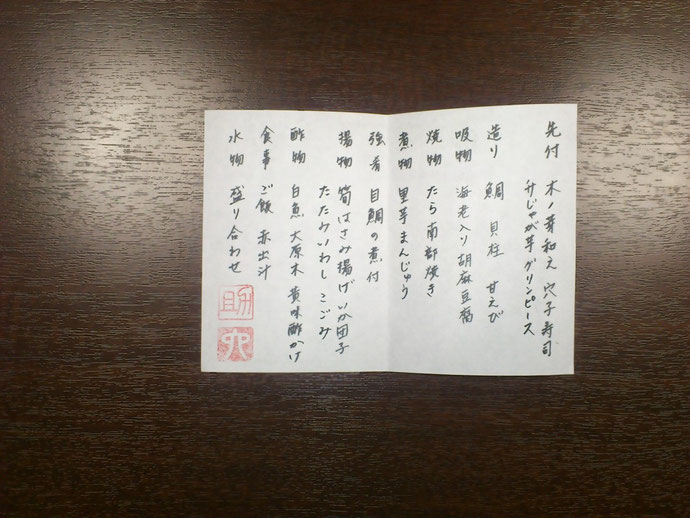 先付 木ノ芽和え 穴子寿司
升じゃが芋 グリンピース
造り 鯛 貝柱 甘えび
吸物 海老入り胡麻豆腐
焼物 たら南部焼き
煮物 里芋まんじゅう
強肴 目鯛の煮付
揚物 筍はさみ揚げ いか団子
たたみいわし こごみ
酢物 白魚 大原木 黄味酢かけ
食事 ご飯 赤出汁
水物 盛り合わせ